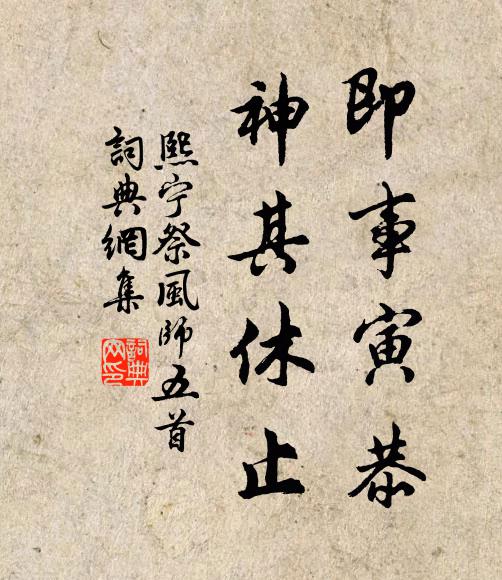 即事寅恭
神其休止
熙宁祭風師五首
詞典網集
詞典
网印